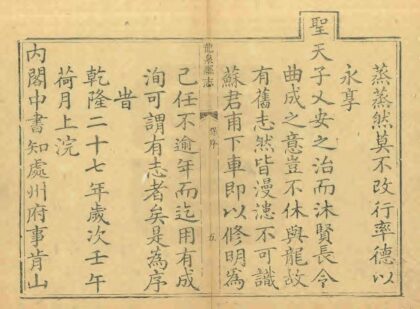 蒸蒸然莫不改行率德以
永享
聖天子乂安之治而沐賢長令
曲成之意豈不休與龍故
有舊志然皆漫漶不可識
蘇君甫下車即以修明爲
龍泉縣志
舊序
五
己任不逾年而迄用有成
洵可謂有志者矣是爲序
旹
乾隆二十七年歲次壬午
荷月上浣
内閣中書知處州府事肯山